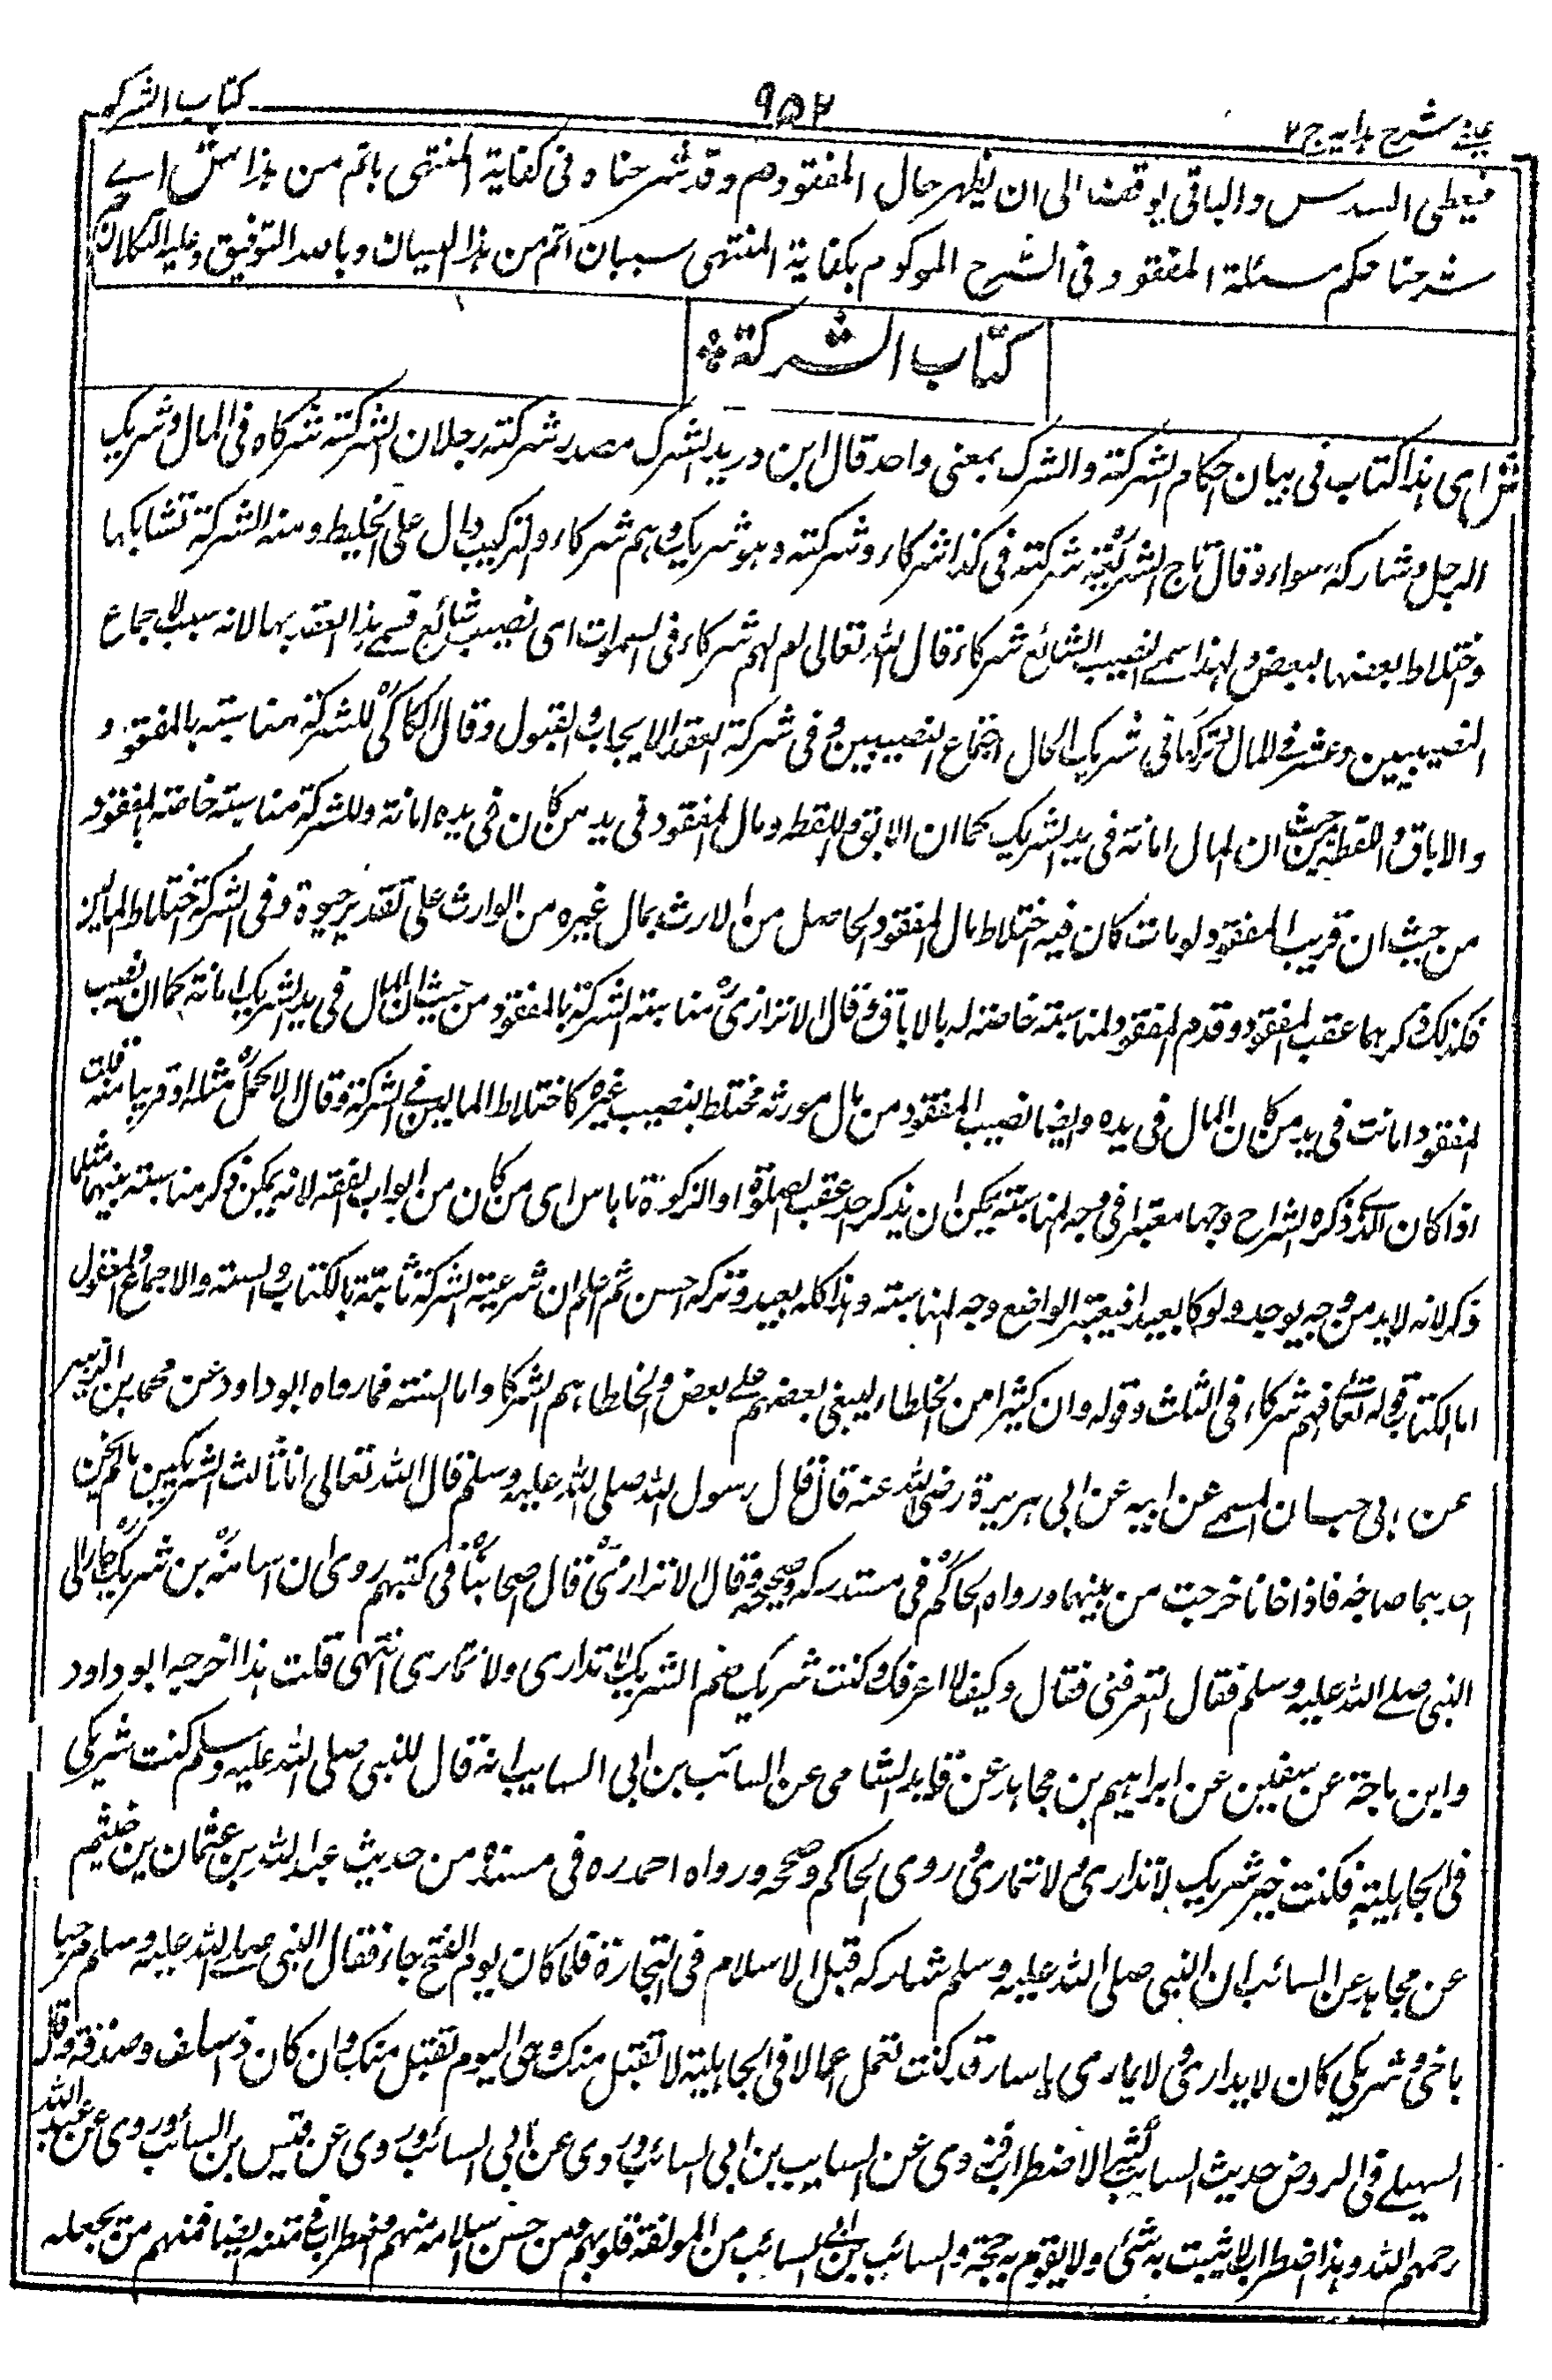 عينى شرح هدايه ج ٢
٩٥٢
كتاب الشركة
فيعطى السدس والباقى يوقف الى ان يظهر حال المفقود هم وقد شرحناه فى كفاية المنتهى باتم من هذا ش اى
شرحنا حكم مسئلة المفقود فى الشرح الموسوم بكفاية المنتهى ببيان اتم من هذا البيان وبالله التوفيق وعليه التكلان
كتاب الشركة
ش اى هذا كتاب فى بيان احكام الشركة والشرك بمعنى واحد قال ابن دريد الشرك مصدر شركته رجلان اشتركته شركاه فى المال وشريك
الرجل ومشاركه سواء وقال تاج الشريعة شركته فى كذا شركاء وشركته وهو شريك وهم شركاء والتركيب دال على الخليط ومنه الشركة تشابكها
واختلاط بعضها ببعض ولهذا سمى النصيب الشائع شركاء قال الله تعالى ام لهم شركاء فى السموات اى نصيب شائع فسمى هذا العقد بها لانه سبب لاجتماع
النصيبين وعشر فى المال شركا فى شريك الحال اجتماع النصيبين وفى شركة العقد الايجاب والقبول وقال الكاكى للشركة مناسبته بالمفقود و
والاباق واللقطة من حيث ان المال امانة فى يد الشريك كما ان الابق واللقطه ومال المفقود فى يد من كان فى يده امانة وللشركة مناسبته خاصة بالمفقود
من حيث ان قريب المفقود لو مات كان فيه اختلاط مال المفقود الحاصل من الارث بمال غيره من الوارث على تقدير حيوة وفى الشركة اختلاط المالين
فلذلك ذكرهما عقب المفقود وقدم المفقود لمناسبته خاصة له بالاباق وقال الاترازى مناسبته الشركة بالمفقود من حيث ان المال فى يد الشريك امانة كما ان نصيب
المفقود امانت فى يد من كان المال فى يده وايضا نصيب المفقود من مال مورثه مختلط بنصيب غيره كاختلاط المالين فى الشركة وقال الاكمل مثله او قريبا منه قلت
اذا كان الذى ذكره الشراح وجها معتبرا فى وجه المناسبته يمكن ان يذكر احد عقب الصلوة او الزكوة بابا من اى من كان من ابواب الفقه لانه يمكن ذكر مناسبته بينهما مثلما
ذكر لانه لا بد من وجه يوجد ولو كا بعيدا فيعتبر الواضع وجه المناسبته وهذا كله بعيد وتركه احسن ثم اعلم ان شرعية الشركة ثابتة بالكتاب والسنة والاجماع والمعقول
اما الكتاب قوله تعالى فهم شركاء فى الثلث وقوله وان كثيرا من الخلطاء ليبغى بعضهم على بعض والخلطا هم الشركا واما السنته فما رواه ابو داود عن محمد بن الزبير
عن ابى حبان المسمى عن ابيه عن ابى هريرة رضى الله عنه قال قال رسول الله صلى الله عليه وسلم قال الله تعالى انا ثالث الشريكين ما لم يخن
احدهما صاحبه فاذا خانا خرجت من بينهما ورواه الحاكم فى مستدركه وصححه وقال الاترازى قال اصحابنا فى كتبهم روى ان اسامة بن شريك جاء الى
النبى صلى الله عليه وسلم فقال اتعرفنى فقال وكيف لا اعرفك وكنت شريكى نعم الشريك لا تدارى ولا تمارى انتهى قلت هذا اخرجه ابو داود
وابن ماجة عن سفين عن ابراهيم بن مجاهد عن قايد الشامى عن السائب بن ابى السايب انه قال للنبى صلى الله عليه وسلم كنت شريكى
فى الجاهلية فكنت خير شريك لا تدارى ولا تمارى روى الحاكم وصححه ورواه احمد ره فى مسنده من حديث عبد الله بن عثمان بن خثيم
عن مجاهد عن السائب ان النبى صلى الله عليه وسلم شاركه قبل الاسلام فى التجارة فلما كان يوم الفتح جاء فقال النبى صلى الله عليه وسلم مرحبا
باخى وشريكى كان لا يدارى ولا يمارى يا سارق كنت تعمل اعمالا فى الجاهلية لا تقبل منك وهى اليوم تقبل منك وان كان ذ سلف وصدقة وقال
السهيلى فى الروض حديث السائب كثير الاضطراب فروى عن السايب بن ابى السائب وروى عن ابى السائب وروى عن قيس بن السائب وروى عن عبد الله
رحمهم الله وهذا اضطراب لا يثبت به شئ ولا يقوم به حجة والسائب بن ابى السائب من المولفة قلوبهم ممن حسن اسلامه منهم واضطراب فى متنه ايضا فمنهم من يجعله